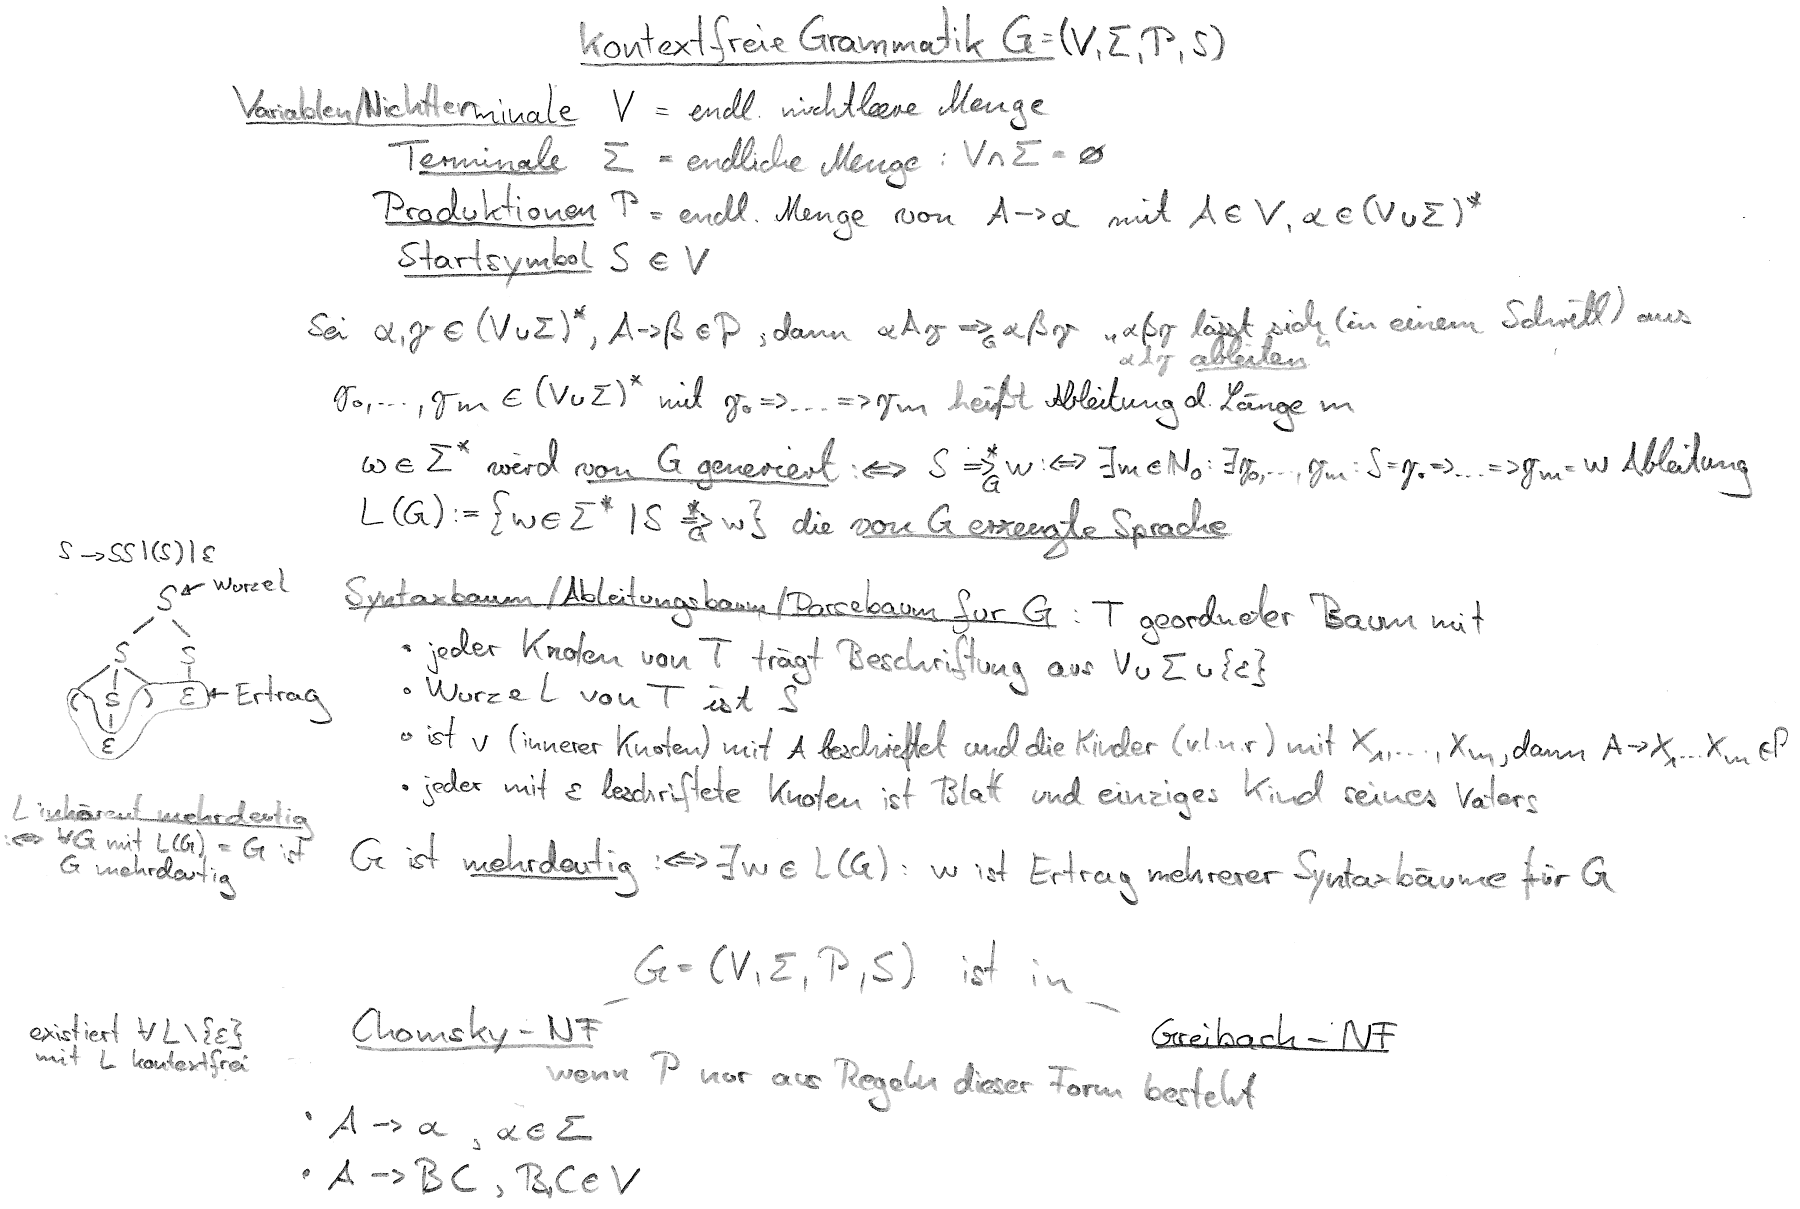 Kontextfreie Grammatik G=(V,Σ,P,S)
Variablen/Nichtterminale V = endl. nichtleere Menge
Terminale Σ = endliche Menge : V∩Σ=∅
Produktionen P = endl. Menge von A→α mit A∈V, α∈(V∪Σ)*
Startsymbol S ∈ V
Sei α,γ ∈ (V∪Σ)*, A→β ∈ P, dann αAγ ⇒_G αβγ „αβγ lässt sich (in einem Schritt) aus
αAγ ableiten"
γ₀,...,γₘ ∈ (V∪Σ)* mit γ₀⇒...⇒γₘ heißt Ableitung d. Länge m
w∈Σ* wird von G generiert :⇔ S ⇒*_G w :⇔ ∃m∈N₀: ∃γ₀,...,γₘ: S=γ₀⇒...⇒γₘ=w Ableitung
L(G):={w∈Σ* | S ⇒*_G w} die von G erzeugte Sprache
S→SS|(S)|ε
S ← Wurzel
S S
( S ) ε ← Ertrag
ε
Syntaxbaum/Ableitungsbaum/Parsebaum für G : T geordneter Baum mit
• jeder Knoten von T trägt Beschriftung aus V∪Σ∪{ε}
• Wurzel von T ist S
• ist v (innerer Knoten) mit A beschriftet und die Kinder (v.l.n.r) mit X₁,...,Xₘ, dann A→X₁...Xₘ ∈P
• jeder mit ε beschriftete Knoten ist Blatt und einziges Kind seines Vaters
L inhärent mehrdeutig
:⇔ ∀G mit L(G) = G ist
G mehrdeutig
G ist mehrdeutig :⇔ ∃w∈L(G): w ist Ertrag mehrerer Syntaxbäume für G
G=(V,Σ,P,S) ist in
existiert ∀L\{ε}
mit L kontextfrei
Chomsky-NF
Greibach-NF
wenn P nur aus Regeln dieser Form besteht
• A → α , α∈Σ
• A → BC , B,C∈V